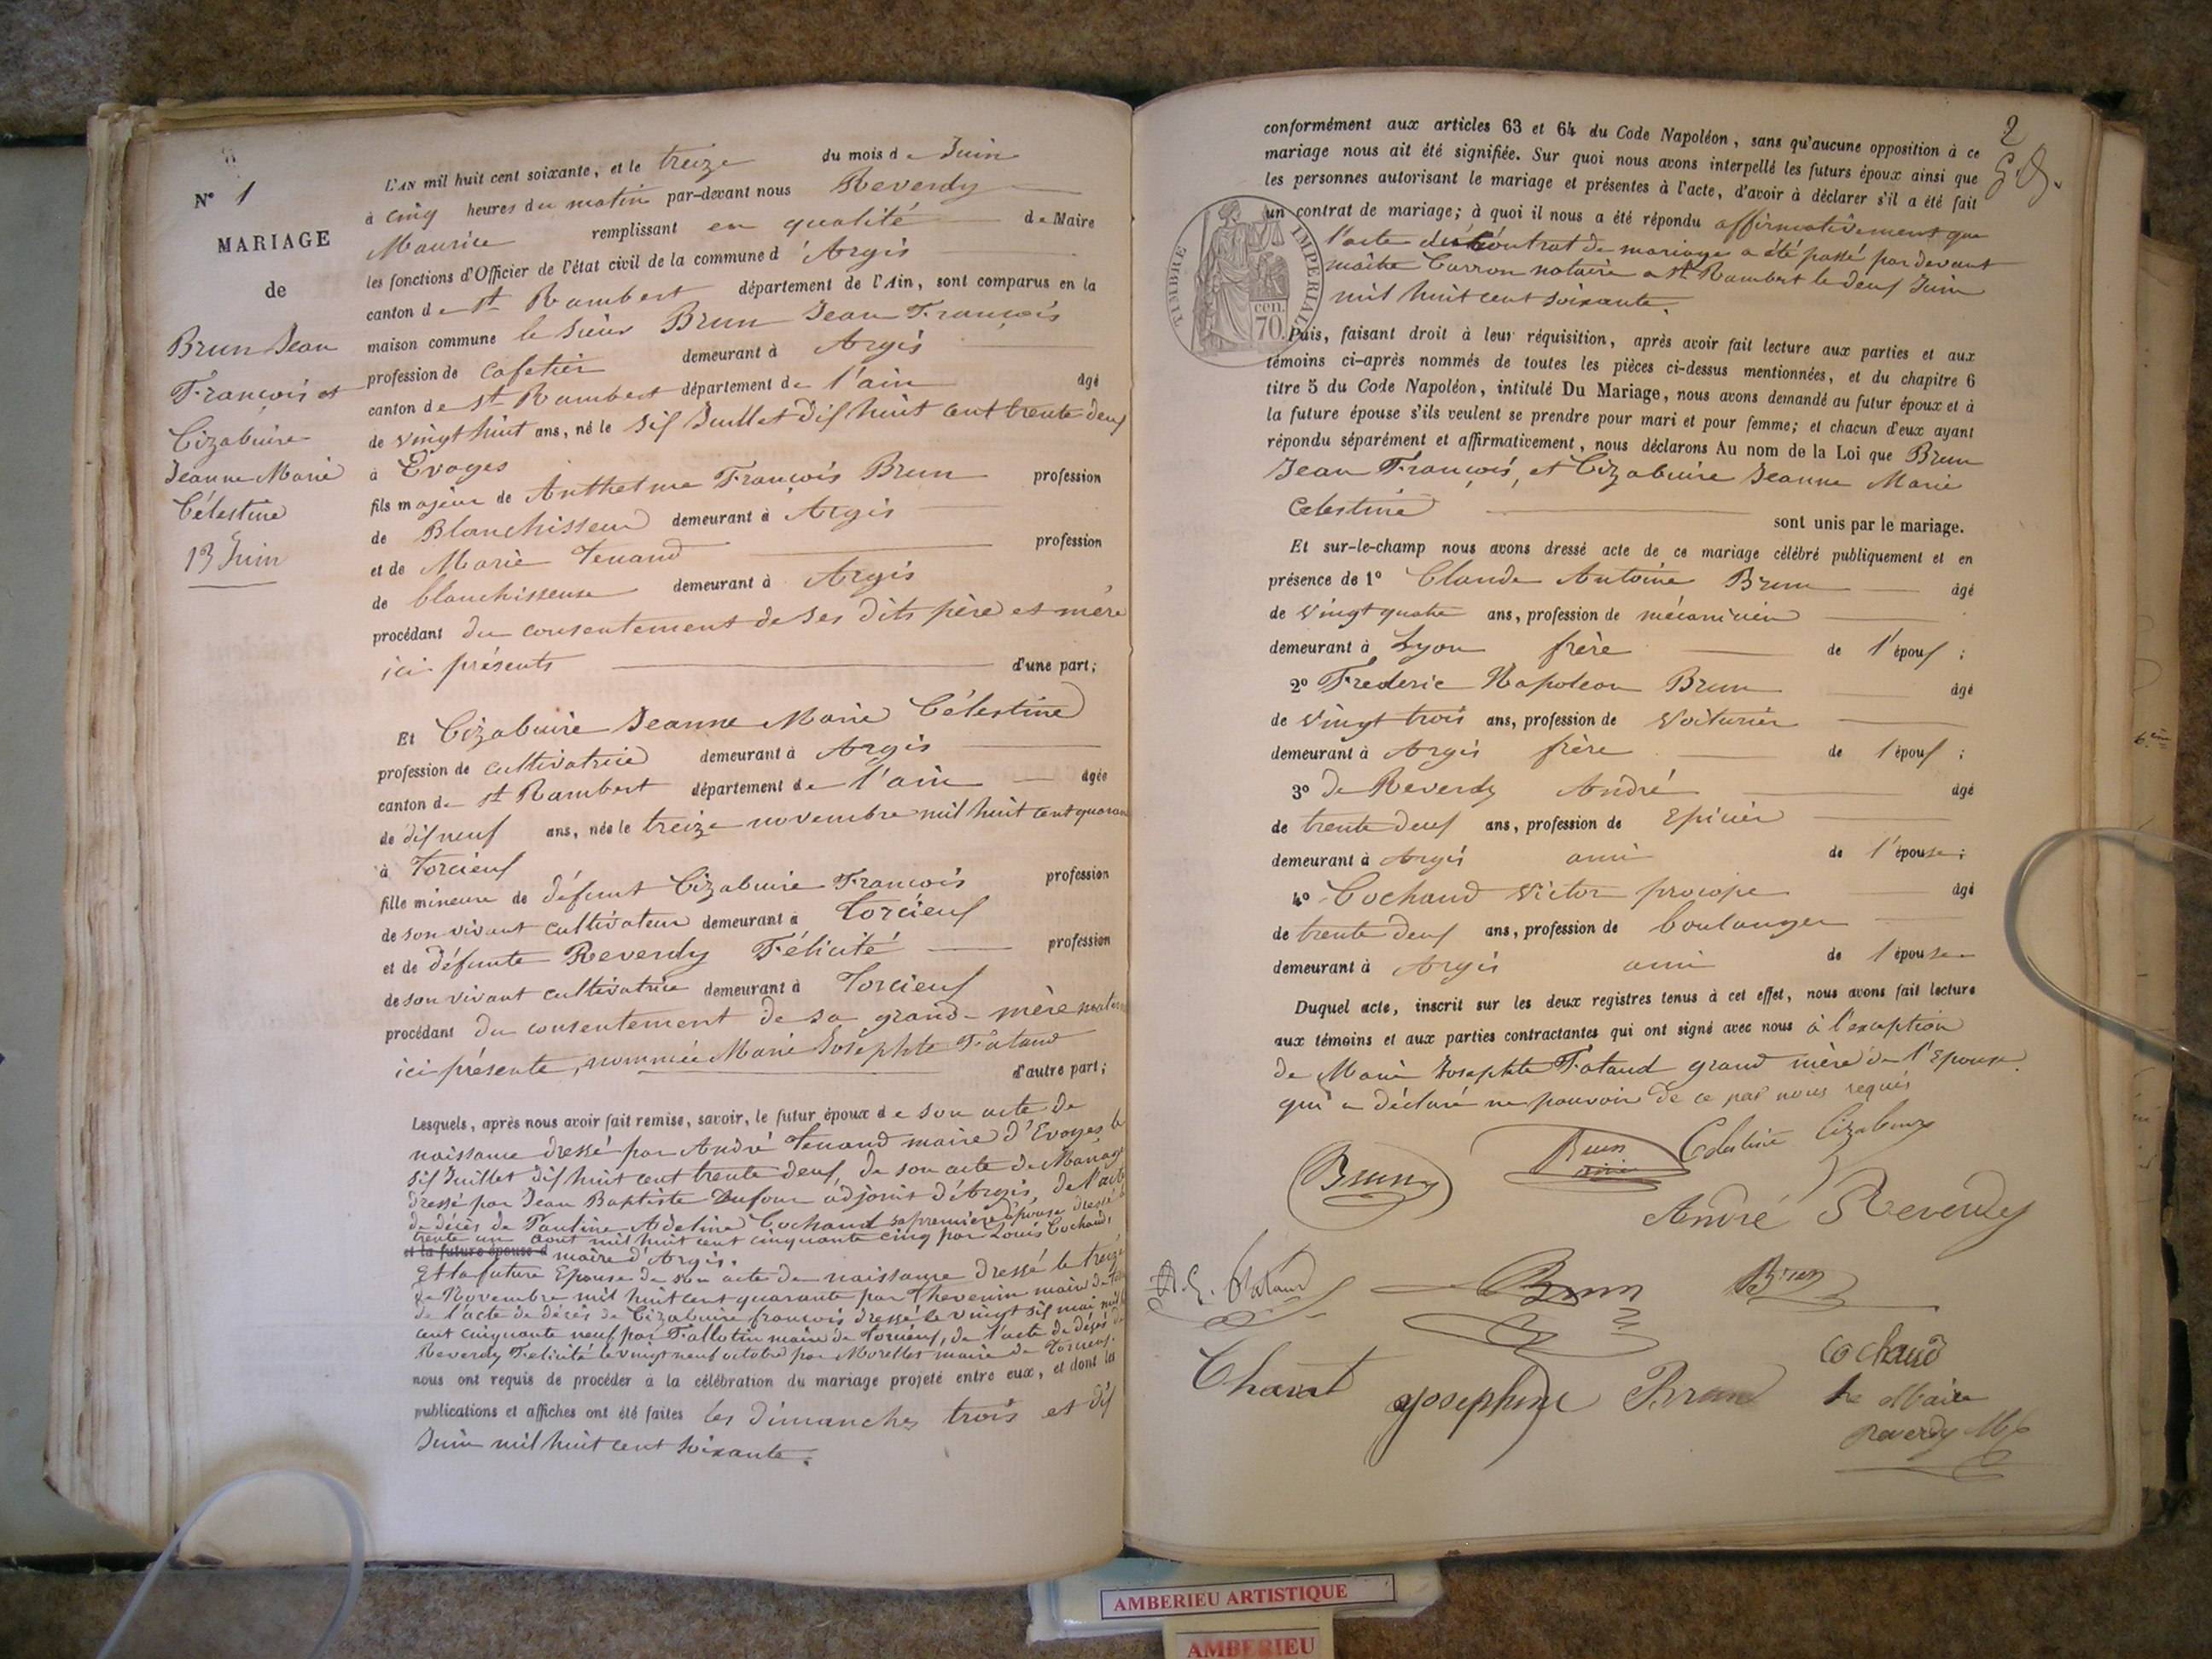 N° 1
MARIAGE
de
Brun Jean
François et
Cizabuire
Jeanne Marie
Célestine
13 Juin
L'AN mil huit cent soixante, et le treize du mois de Juin
à cinq heures du matin par-devant nous Reverdy
Maurice remplissant en qualité de Maire
les fonctions d'Officier de l'état civil de la commune d'Argis
canton de St Rambert département de l'Ain, sont comparus en la
maison commune le sieur Brun Jean François
profession de cafetier demeurant à Argis
canton de St Rambert département de l'ain âgé
de vingt huit ans, né le dix Juillet dix huit cent trente deux
à Evoges
fils majeur de Anthelme François Brun profession
de Blanchisseur demeurant à Argis
et de Marie Tenand profession
de blanchisseuse demeurant à Argis
procédant du consentement de ses dits père et mère
ici présents d'une part;
Et Cizabuire Jeanne Marie Célestine
profession de cultivatrice demeurant à Argis
canton de St Rambert département de l'ain âgée
de dix neuf ans, née le treize novembre mil huit cent quaran
à Torcieux
fille mineure de défunt Cizabuire François profession
de son vivant cultivateur demeurant à Torcieux
et de défunte Reverdy Félicité profession
de son vivant cultivatrice demeurant à Torcieux
procédant du consentement de sa grand-mère mater
ici présente, nommée Marie Josephte Tataud
d'autre part;
Lesquels, après nous avoir fait remise, savoir, le futur époux de son acte de
naissance dressé par André Tenand maire d'Evoges le
dix Juillet dix huit cent trente deux, de son acte de Mariage
dressé par Jean Baptiste Dufour adjoint d'Argis, de l'acte
de décès de Pauline Adeline Cochaud sa première épouse dressé le
trente un aout mil huit cent cinquante cinq par Louis Cochaud,
et la future épouse d maire d'Argis.
Et la future Epouse de son acte de naissance dressé le treize
de Novembre mil huit cent quarante par Thevenin maire de
de l'acte de décès de Cizabuire françois dressé le vingt six mai mil
cent cinquante neuf par Fallotin maire de Torcieux, de l'acte de décès de
Reverdy Félicité le vingt neuf octobre par Morellet maire de Torcieux.
nous ont requis de procéder à la célébration du mariage projeté entre eux, et dont la
publications et affiches ont été faites les dimanches trois et dix
Juin mil huit cent soixante.
2
conformément aux articles 63 et 64 du Code Napoléon, sans qu'aucune opposition à ce
mariage nous ait été signifiée. Sur quoi nous avons interpellé les futurs époux ainsi que
les personnes autorisant le mariage et présentes à l'acte, d'avoir à déclarer s'il a été fait
un contrat de mariage; à quoi il nous a été répondu affirmativement que
l'acte du contrat de mariage a été passé par devant
maître Carron notaire a St Rambert le deux Juin
mil huit cent soixante.
TIMBRE IMPÉRIAL
70 cen.
Puis, faisant droit à leur réquisition, après avoir fait lecture aux parties et aux
témoins ci-après nommés de toutes les pièces ci-dessus mentionnées, et du chapitre 6
titre 5 du Code Napoléon, intitulé Du Mariage, nous avons demandé au futur époux et à
la future épouse s'ils veulent se prendre pour mari et pour femme; et chacun d'eux ayant
répondu séparément et affirmativement, nous déclarons Au nom de la Loi que Brun
Jean François, et Cizabuire Jeanne Marie
Celestine
sont unis par le mariage.
Et sur-le-champ nous avons dressé acte de ce mariage célébré publiquement et en
présence de 1° Claude Antoine Brun âgé
de vingt quatre ans, profession de mécanicien
demeurant à Lyon frère de l'époux;
2° Frederic Napoleon Brun âgé
de vingt trois ans, profession de Voiturier
demeurant à Argis frère de l'époux;
3° de Reverdy André âgé
de trente deux ans, profession de Epicier
demeurant à Argis ami de l'épouse;
4° Cochaud Victor procope âgé
de trente deux ans, profession de boulanger
demeurant à Argis ami de l'épouse
Duquel acte, inscrit sur les deux registres tenus à cet effet, nous avons fait lecture
aux témoins et aux parties contractantes qui ont signé avec nous à l'exception
de Marie Josephte Tataud grand mère de l'Epouse
qui a déclaré ne pouvoir de ce par nous requis
Brun Brun Celestine Cizabuire
André Reverdy
Brun Brun
Cochaud
Josephine Brun Le Maire
Reverdy
AMBERIEU ARTISTIQUE
AMBERIEU